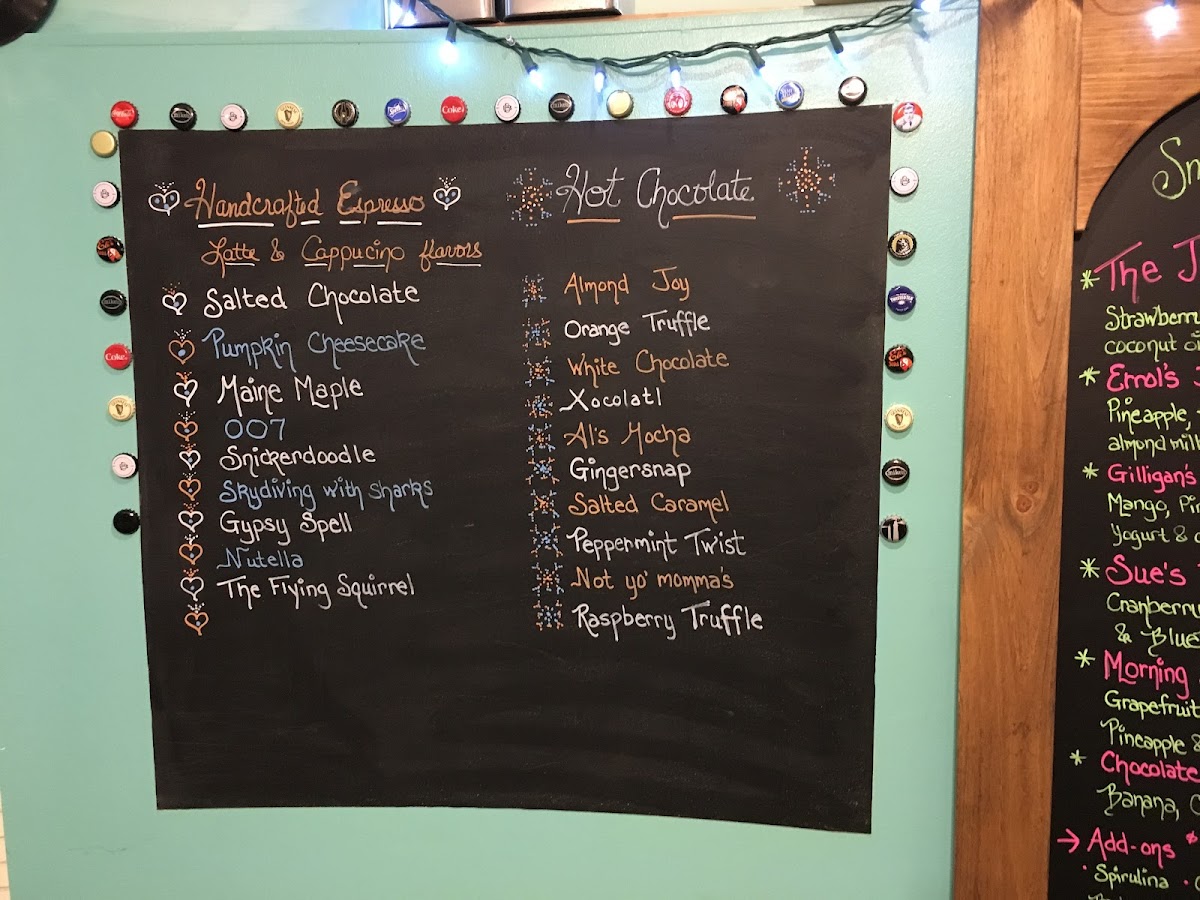 Handcrafted Espresso
Latte & Cappucino flavors
Salted Chocolate
Pumpkin Cheesecake
Maine Maple
007
Snickerdoodle
Skydiving with sharks
Gypsy Spell
Nutella
The Flying Squirrel
Hot Chocolate
Almond Joy
Orange Truffle
White Chocolate
Xocolatl
Al's Mocha
Gingersnap
Salted Caramel
Peppermint Twist
Not yo' momma's
Raspberry Truffle
The J
Strawberry
coconut
Pineapple,
almond milk
Gilligan's
Mango, Pin
Yogurt &
Sue's
Cranberry
& Blue
Morning
Grapefruit
Pineapple &
Chocolate
Banana, C
→ Add-ons
· Spirulina ·
Coke
Coke